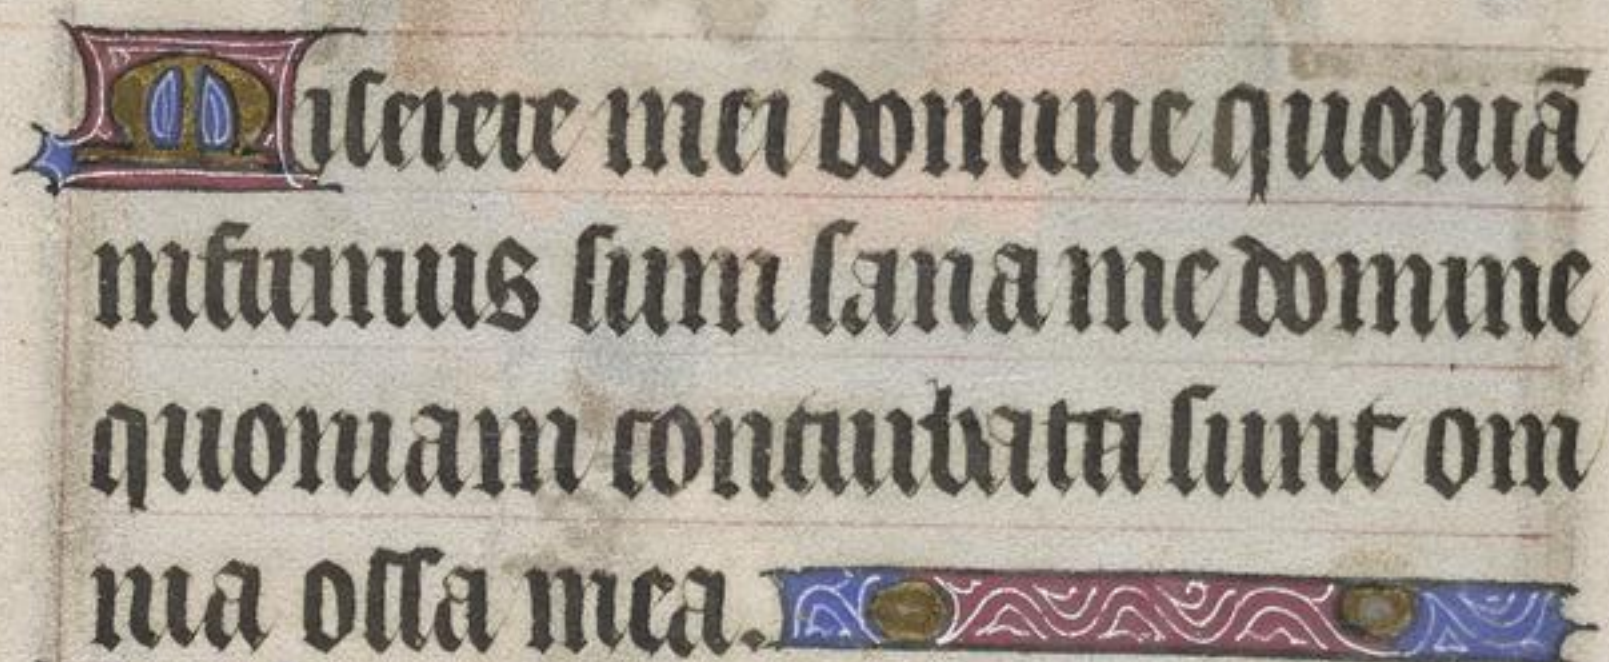 Miserere mei domine quoniā
infirmus sum sana me domine
quoniam conturbata sunt om
nia ossa mea.